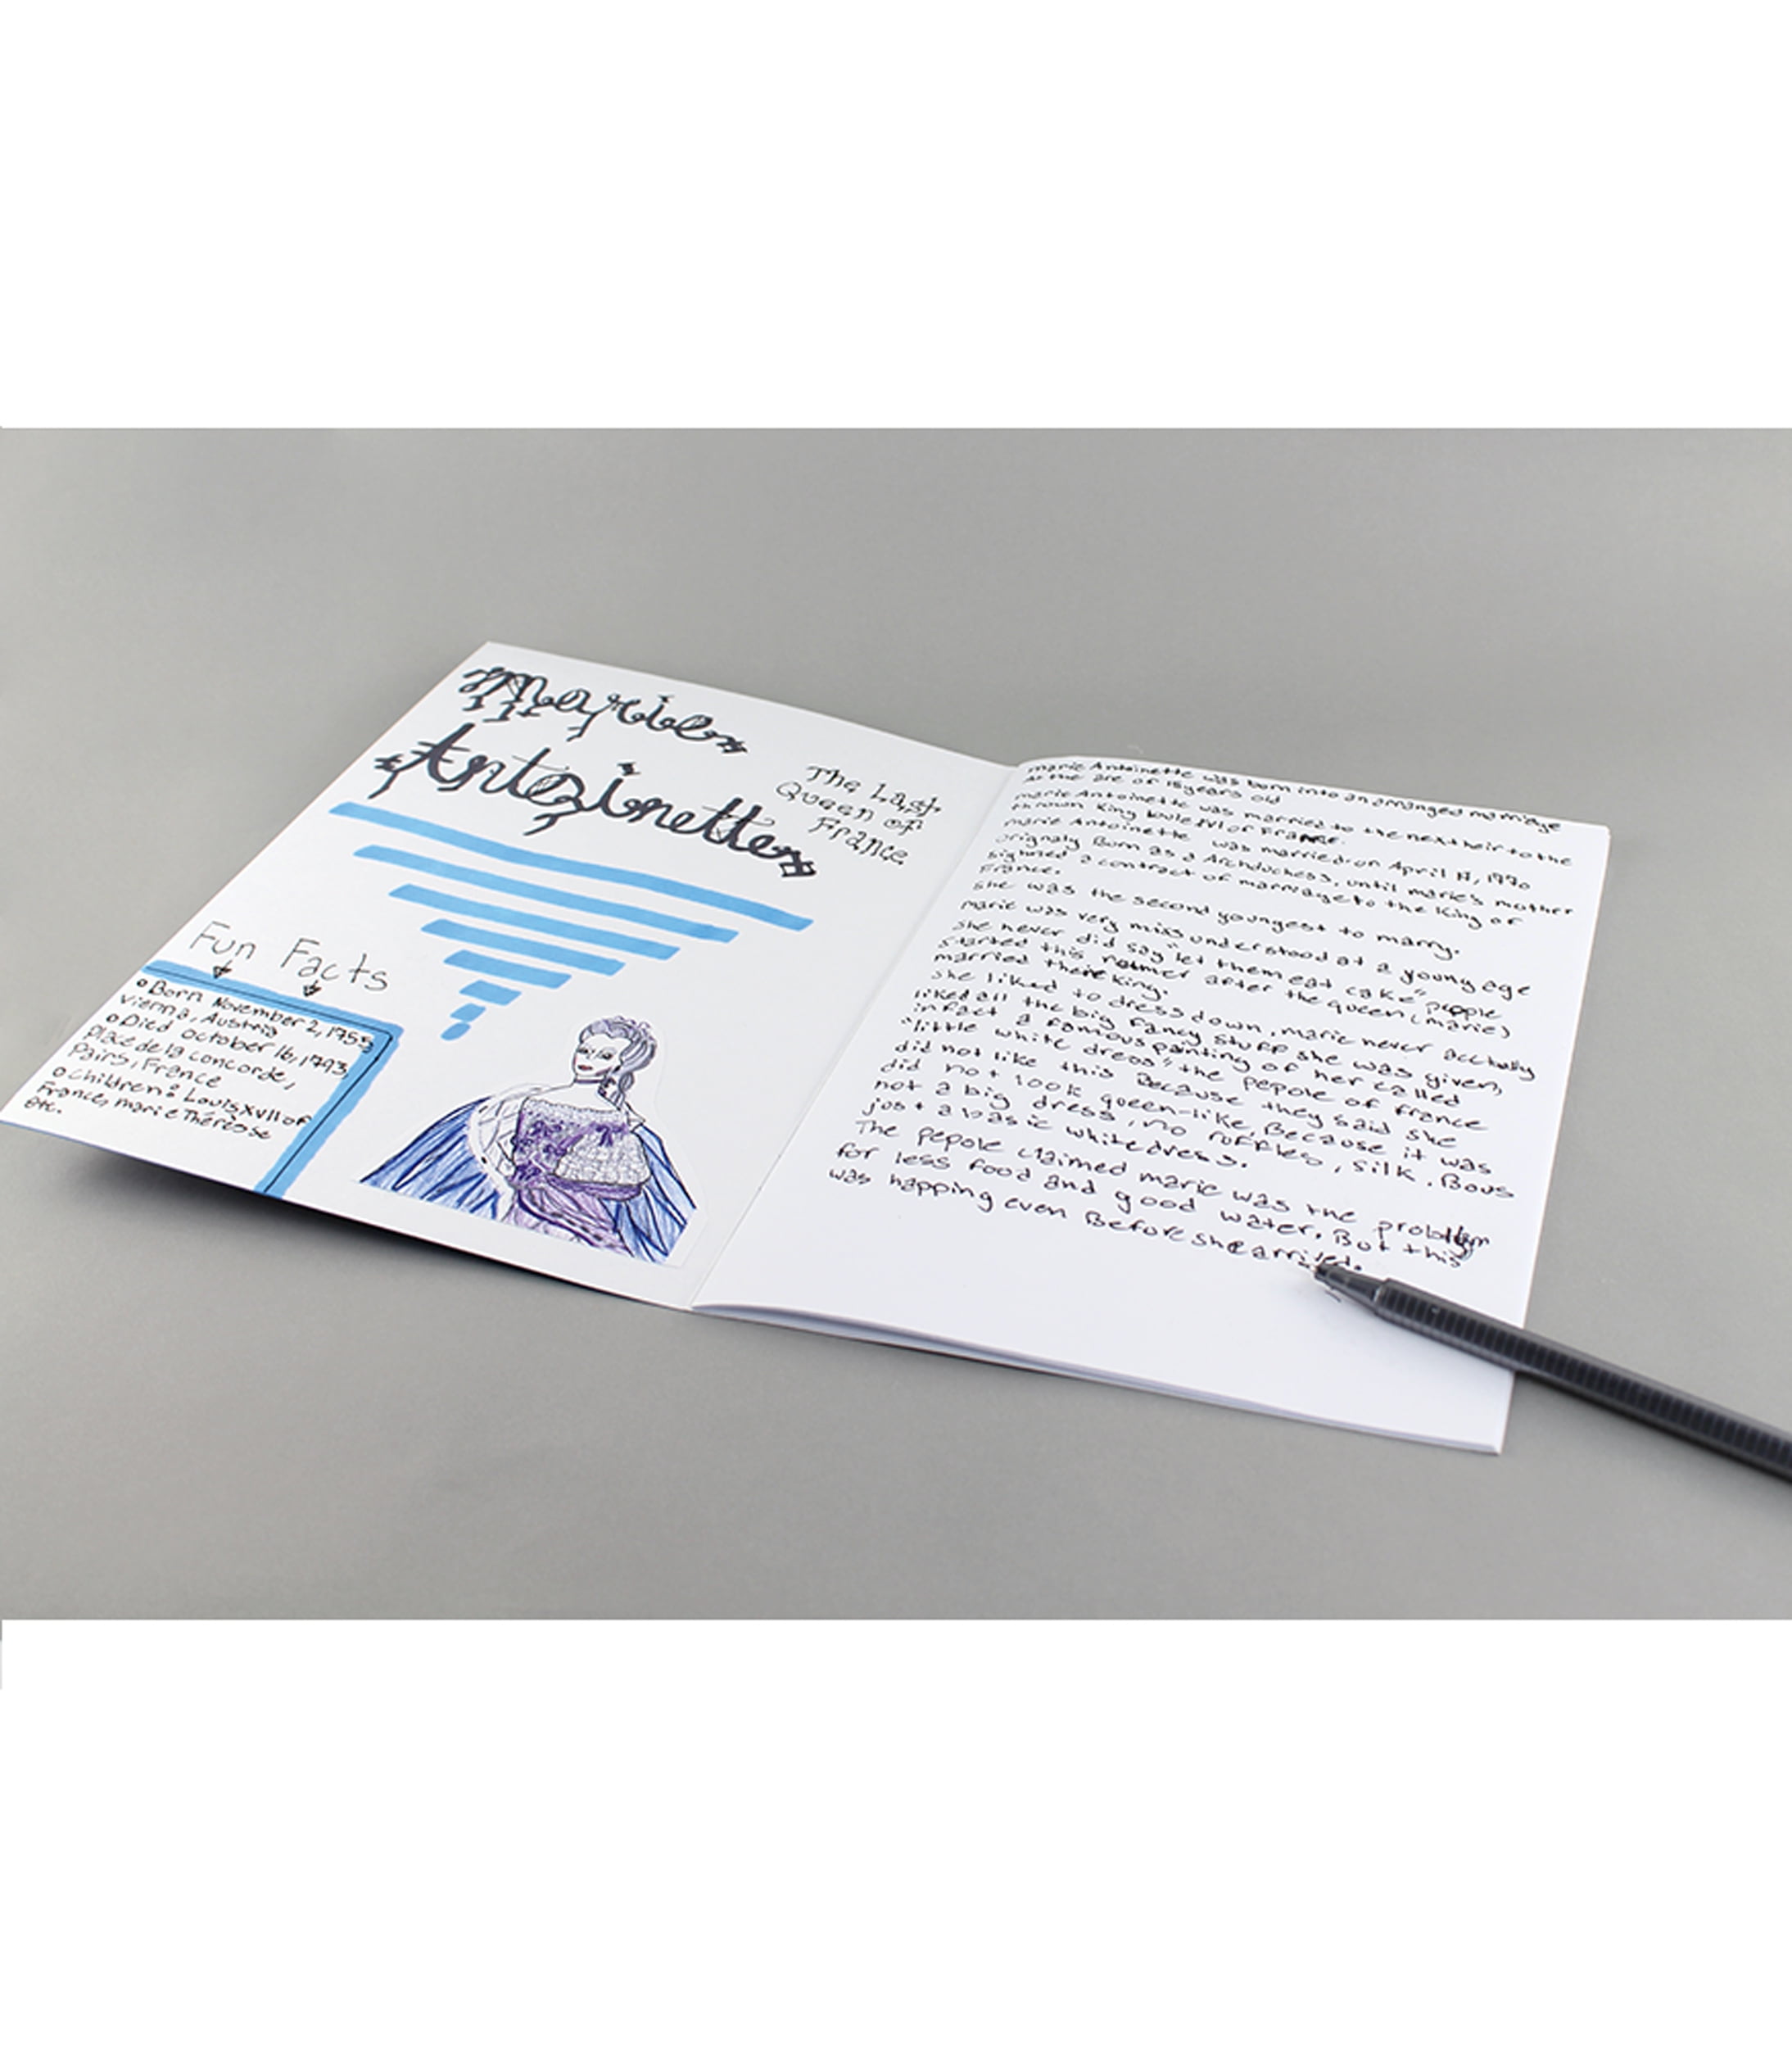 Marie
Antoinette
The Last
Queen of
France
Fun Facts
Born November 2, 1755
Vienna, Austria
Died october 16, 1793,
place de la concorde,
Pairs, France
children: Louis XVII of
France, marie Thérèse
etc.
marie Antoinette was born into an arranged marriage
At the age of 15 years old
marie Antoinette was married to the next heir to the
thrown King of France.
marie Antoinette was married on April
orignaly Born as a Archduchess, until marie's mother
signed a contract of marriage to the King of
France.
She was the second youngest to marry.
marie was very miss understood at a young age
She never did say "let them eat cake" people
started this after the queen (marie)
married king.
She liked to dress down, marie never acctually
liked all the big fancy stuff she was given,
infact a famous painting of her called
"little white dress" the pepole of france
did not like this Because they said she
did not look queen-like, Because it was
not a big dress, no ruffles, silk, Bows
just a basic white dress.
The pepole claimed marie was the problem
for less food and good water, But this
was happing even Before she arrived.